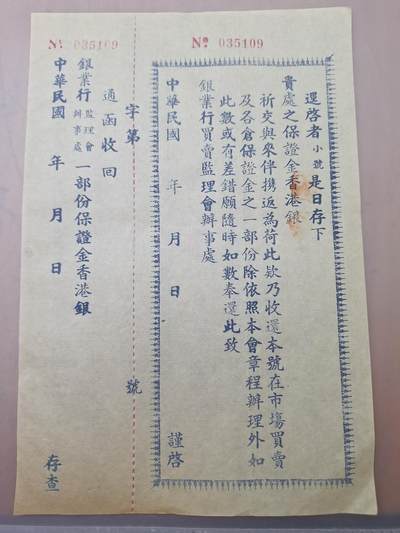 Nº 035109
Nº 035109
逕啓者小號是日存下
貴處之保證金香港銀
祈交與來伴携返為荷此欵乃收還本號在市塲買賣
及各倉保證金之一部份除依照本會章程辦理外如
此數或有差錯願隨時如數奉還此致
銀業行買賣監理會辦事處
中華民國 年 月 日 謹啓
字第 號
通函收回
銀業行監理會辦事處一部份保證金香港銀
中華民國 年 月 日 存查